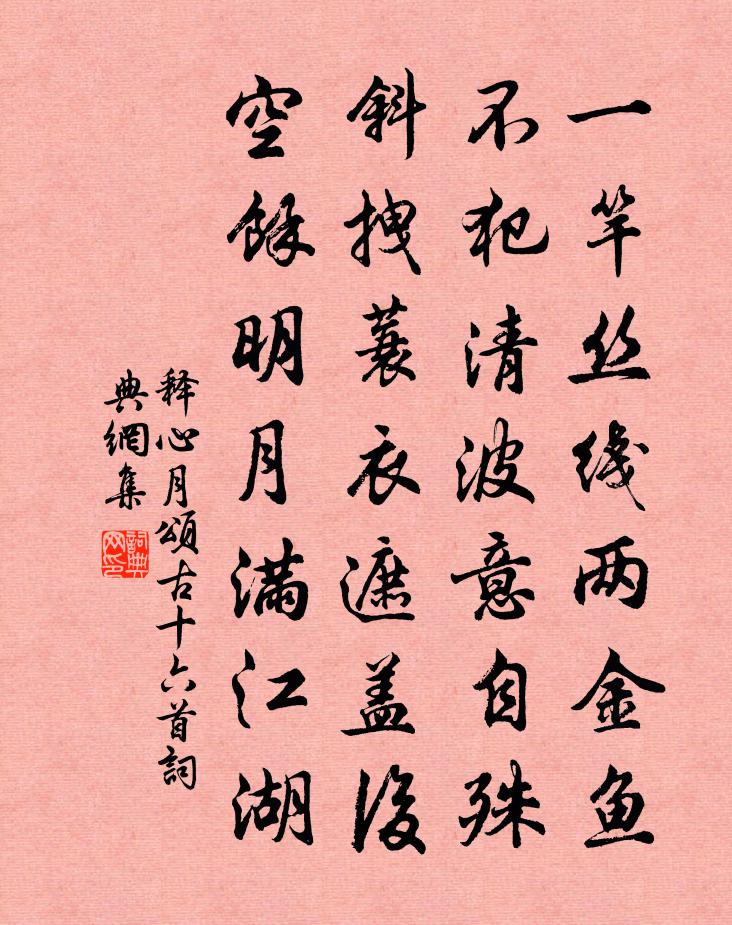 一竿丝线两金鱼
不犯清波意自殊
斜拽蓑衣遮盖后
空馀明月满江湖
释心月頌古十六首詞
典網集
詞典网印